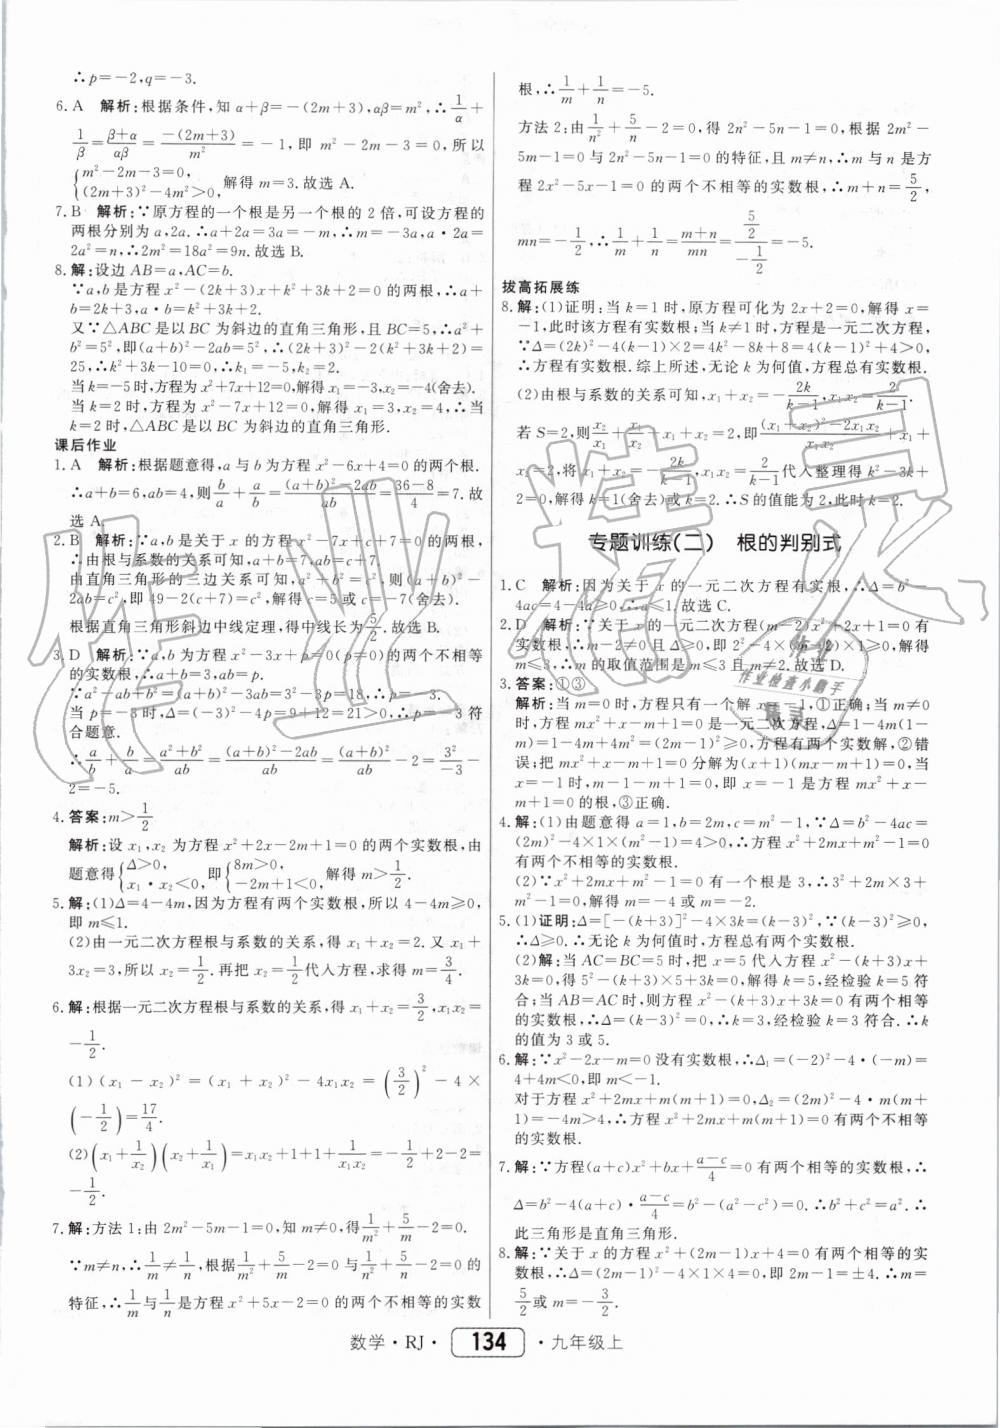 ∴p=-2,q=-3.
6. A 解析:根据条件,知 α+β=-(2m+3),αβ=m²,∴1/α+
1/β=(β+α)/(αβ)=-(2m+3)/m²=-1,即 m²-2m-3=0,所以
{m²-2m-3=0, (2m+3)²-4m²>0, 解得 m=3.故选 A.
7. B 解析:∵原方程的一个根是另一个根的 2 倍,可设方程的
两根分别为 a,2a.∴a+2a=3a=-m,∴m=-3a,a·2a=
2a²=n,∴2m²=18a²=9n.故选 B.
8. 解:设边 AB=a,AC=b.
∵a,b 是方程 x²-(2k+3)x+k²+3k+2=0 的两根,∴a
+b=2k+3,a·b=k²+3k+2.
又∵△ABC 是以 BC 为斜边的直角三角形,且 BC=5,∴a²+
b²=5²,即(a+b)²-2ab=5²,∴(2k+3)²-2(k²+3k+2)=
25,∴k²+3k-10=0,∴k₁=-5,k₂=2.
当 k=-5 时,方程为 x²+7x+12=0,解得 x₁=-3,x₂=-4(舍去).
当 k=2 时,方程为 x²-7x+12=0,解得 x₁=3,x₂=4,∴当
k=2 时,△ABC 是以 BC 为斜边的直角三角形.
课后作业
1. A 解析:根据题意得,a 与 b 为方程 x²-6x+4=0 的两个根.
∴a+b=6,ab=4,则 b/a+a/b=((a+b)²-2ab)/ab=(36-8)/4=7.故
选 A.
2. B 解析:∵a,b 是关于 x 的一元二次方程 x²-7x+c+7=0 的两根,
∴由根与系数的关系可知,a+b=7,ab=c+7.
由直角三角形的三边关系可知,a²+b²=c²,则(a+b)²-
2ab=c²,即 49-2(c+7)=c²,解得 c=5 或 c=-7(舍去).
根据直角三角形斜边中线定理,得中线长为 5/2.故选 B.
3. D 解析:∵a,b 为方程 x²-3x+p=0(p≠0)的两个不相等
的实数根,∴a+b=3,ab=p.
∵a²-ab+b²=(a+b)²-3ab=3²-3p=18,∴p=-3.
当 p=-3 时,Δ=(-3)²-4p=9+12=21>0,∴p=-3 符
合题意.
∴a/b+b/a=(a²+b²)/ab=((a+b)²-2ab)/ab=(a+b)²/ab-2=3²/-3-
2=-5.
4. 答案:m>1/2
解析:设 x₁,x₂ 为方程 x²+2x-2m+1=0 的两个实数根,由
题意得{Δ>0, x₁·x₂<0, 即{8m>0, -2m+1<0, 解得 m>1/2.
5. 解:(1)Δ=4-4m,因为方程有实数根,所以 4-4m≥0,
即 m≤1.
(2)由一元二次方程根与系数的关系,得 x₁+x₂=2. 又 x₁+
3x₂=3,所以 x₂=1/2. 再把 x₂=1/2代入方程,求得 m=3/4.
6. 解:根据一元二次方程根与系数的关系,得 x₁+x₂=3/2,x₁x₂=
-1/2.
(1)(x₁-x₂)²=(x₁+x₂)²-4x₁x₂=(3/2)²-4×
(-1/2)=17/4.
(2)(x₁+1/x₂)(x₂+1/x₁)=x₁x₂+1+1+1/(x₁x₂)=-1/2+2-2=
-1/2.
7. 解:方法 1:由 2m²-5m-1=0,知 m≠0,得1/m²+5/m-2=0.
∵m≠n,∴1/m≠1/n,根据1/m²+5/m-2=0 与1/n²+5/n-2=0 的
特征,∴1/m与1/n是方程 x²+5x-2=0 的两个不相等的实数
根,∴1/m+1/n=-5.
方法 2:由1/n²+5/n-2=0,得 2n²-5n-1=0,根据 2m²-
5m-1=0 与 2n²-5n-1=0 的特征,且 m≠n,∴m 与 n 是方
程 2x²-5x-1=0 的两个不相等的实数根,∴m+n=5/2,
mn=-1/2,∴1/m+1/n=(m+n)/mn=(5/2)/(-1/2)=-5.
拔高拓展练
8. 解:(1)证明:当 k=1 时,原方程可化为 2x+2=0,解得 x=
-1,此时该方程有实数根;当 k≠1 时,方程是一元二次方程,
∵Δ=(2k)²-4(k-1)×2=4k²-8k+8=4(k-1)²+4>0,
∴方程有实数根.综上所述,无论 k 为何值,方程总有实数根.
(2)由根与系数的关系可知,x₁+x₂=-2k/(k-1),x₁x₂=2/(k-1).
若 S=2,则x₂/x₁+x₁/x₂+x₁+x₂=2,即((x₁+x₂)²-2x₁x₂)/(x₁x₂)+x₁+
x₂=2,将 x₁+x₂=-2k/(k-1),x₁x₂=2/(k-1)代入整理得 k²-3k+
2=0,解得 k=1(舍去)或 k=2.∴S 的值能为 2,此时 k=2.
专题训练(二) 根的判别式
1. C 解析:因为关于 x 的一元二次方程有实根,∴Δ=b²-
4ac=4-4a≥0,∴a≤1.故选 C.
2. D 解析:∵关于 x 的一元二次方程(m-2)x²+2x+1=0 有
实数根,∴m-2≠0 且 Δ≥0,即 2²-4(m-2)≥0,解得
m≤3,∴m 的取值范围是 m≤3 且 m≠2.故选 D.
3. 答案:①③
解析:当 m=0 时,方程只有一个解 x=-1,①正确;当 m≠0
时,方程 mx²+x-m+1=0 是一元二次方程,Δ=1-4m(1-
m)=1-4m+4m²=(2m-1)²≥0,方程有两个实数解,②错
误;把 mx²+x-m+1=0 分解为(x+1)(mx-m+1)=0,当 x
=-1 时,m-1-m+1=0,即 x=-1 是方程 mx²+x-
m+1=0 的根,③正确.
4. 解:(1)由题意得 a=1,b=2m,c=m²-1,∵Δ=b²-4ac=
(2m)²-4×1×(m²-1)=4>0,∴方程 x²+2mx+m²-1=0
有两个不相等的实数根.
(2)∵x²+2mx+m²-1=0 有一个根是 3,∴3²+2m×3+
m²-1=0,解得 m=-4 或 m=-2.
5. (1)证明:Δ=[-(k+3)]²-4×3k=(k-3)²,∵(k-3)²≥0,
∴Δ≥0.∴无论 k 为何值时,方程总有两个实数根.
(2)解:当 AC=BC=5 时,把 x=5 代入方程 x²-(k+3)x+
3k=0,得 5²-(k+3)×5+3k=0,解得 k=5,经检验 k=5 符
合;当 AB=AC 时,则方程 x²-(k+3)x+3k=0 有两个相等
的实数根,∴Δ=(k-3)²=0,∴k=3,经检验 k=3 符合.∴k
的值为 3 或 5.
6. 解:∵x²-2x-m=0 没有实数根,∴Δ₁=(-2)²-4·(-m)
=4+4m<0,即 m<-1.
对于方程 x²+2mx+m(m+1)=0,Δ₂=(2m)²-4·m(m+
1)=-4m>4,∴方程 x²+2mx+m(m+1)=0 有两个不相等
的实数根.
7. 解:∵方程(a+c)x²+bx+(a-c)/4=0 有两个相等的实数根,∴
Δ=b²-4(a+c)·(a-c)/4=b²-(a²-c²)=0.∴b²+c²=a².∴
此三角形是直角三角形.
8. 解:∵关于 x 的方程 x²+(2m-1)x+4=0 有两个相等的实
数根,∴Δ=(2m-1)²-4×1×4=0,即 2m-1=±4.∴m=
5/2或 m=-3/2.
数学·RJ· 134 ·九年级上
作业精灵
作业检查小助手